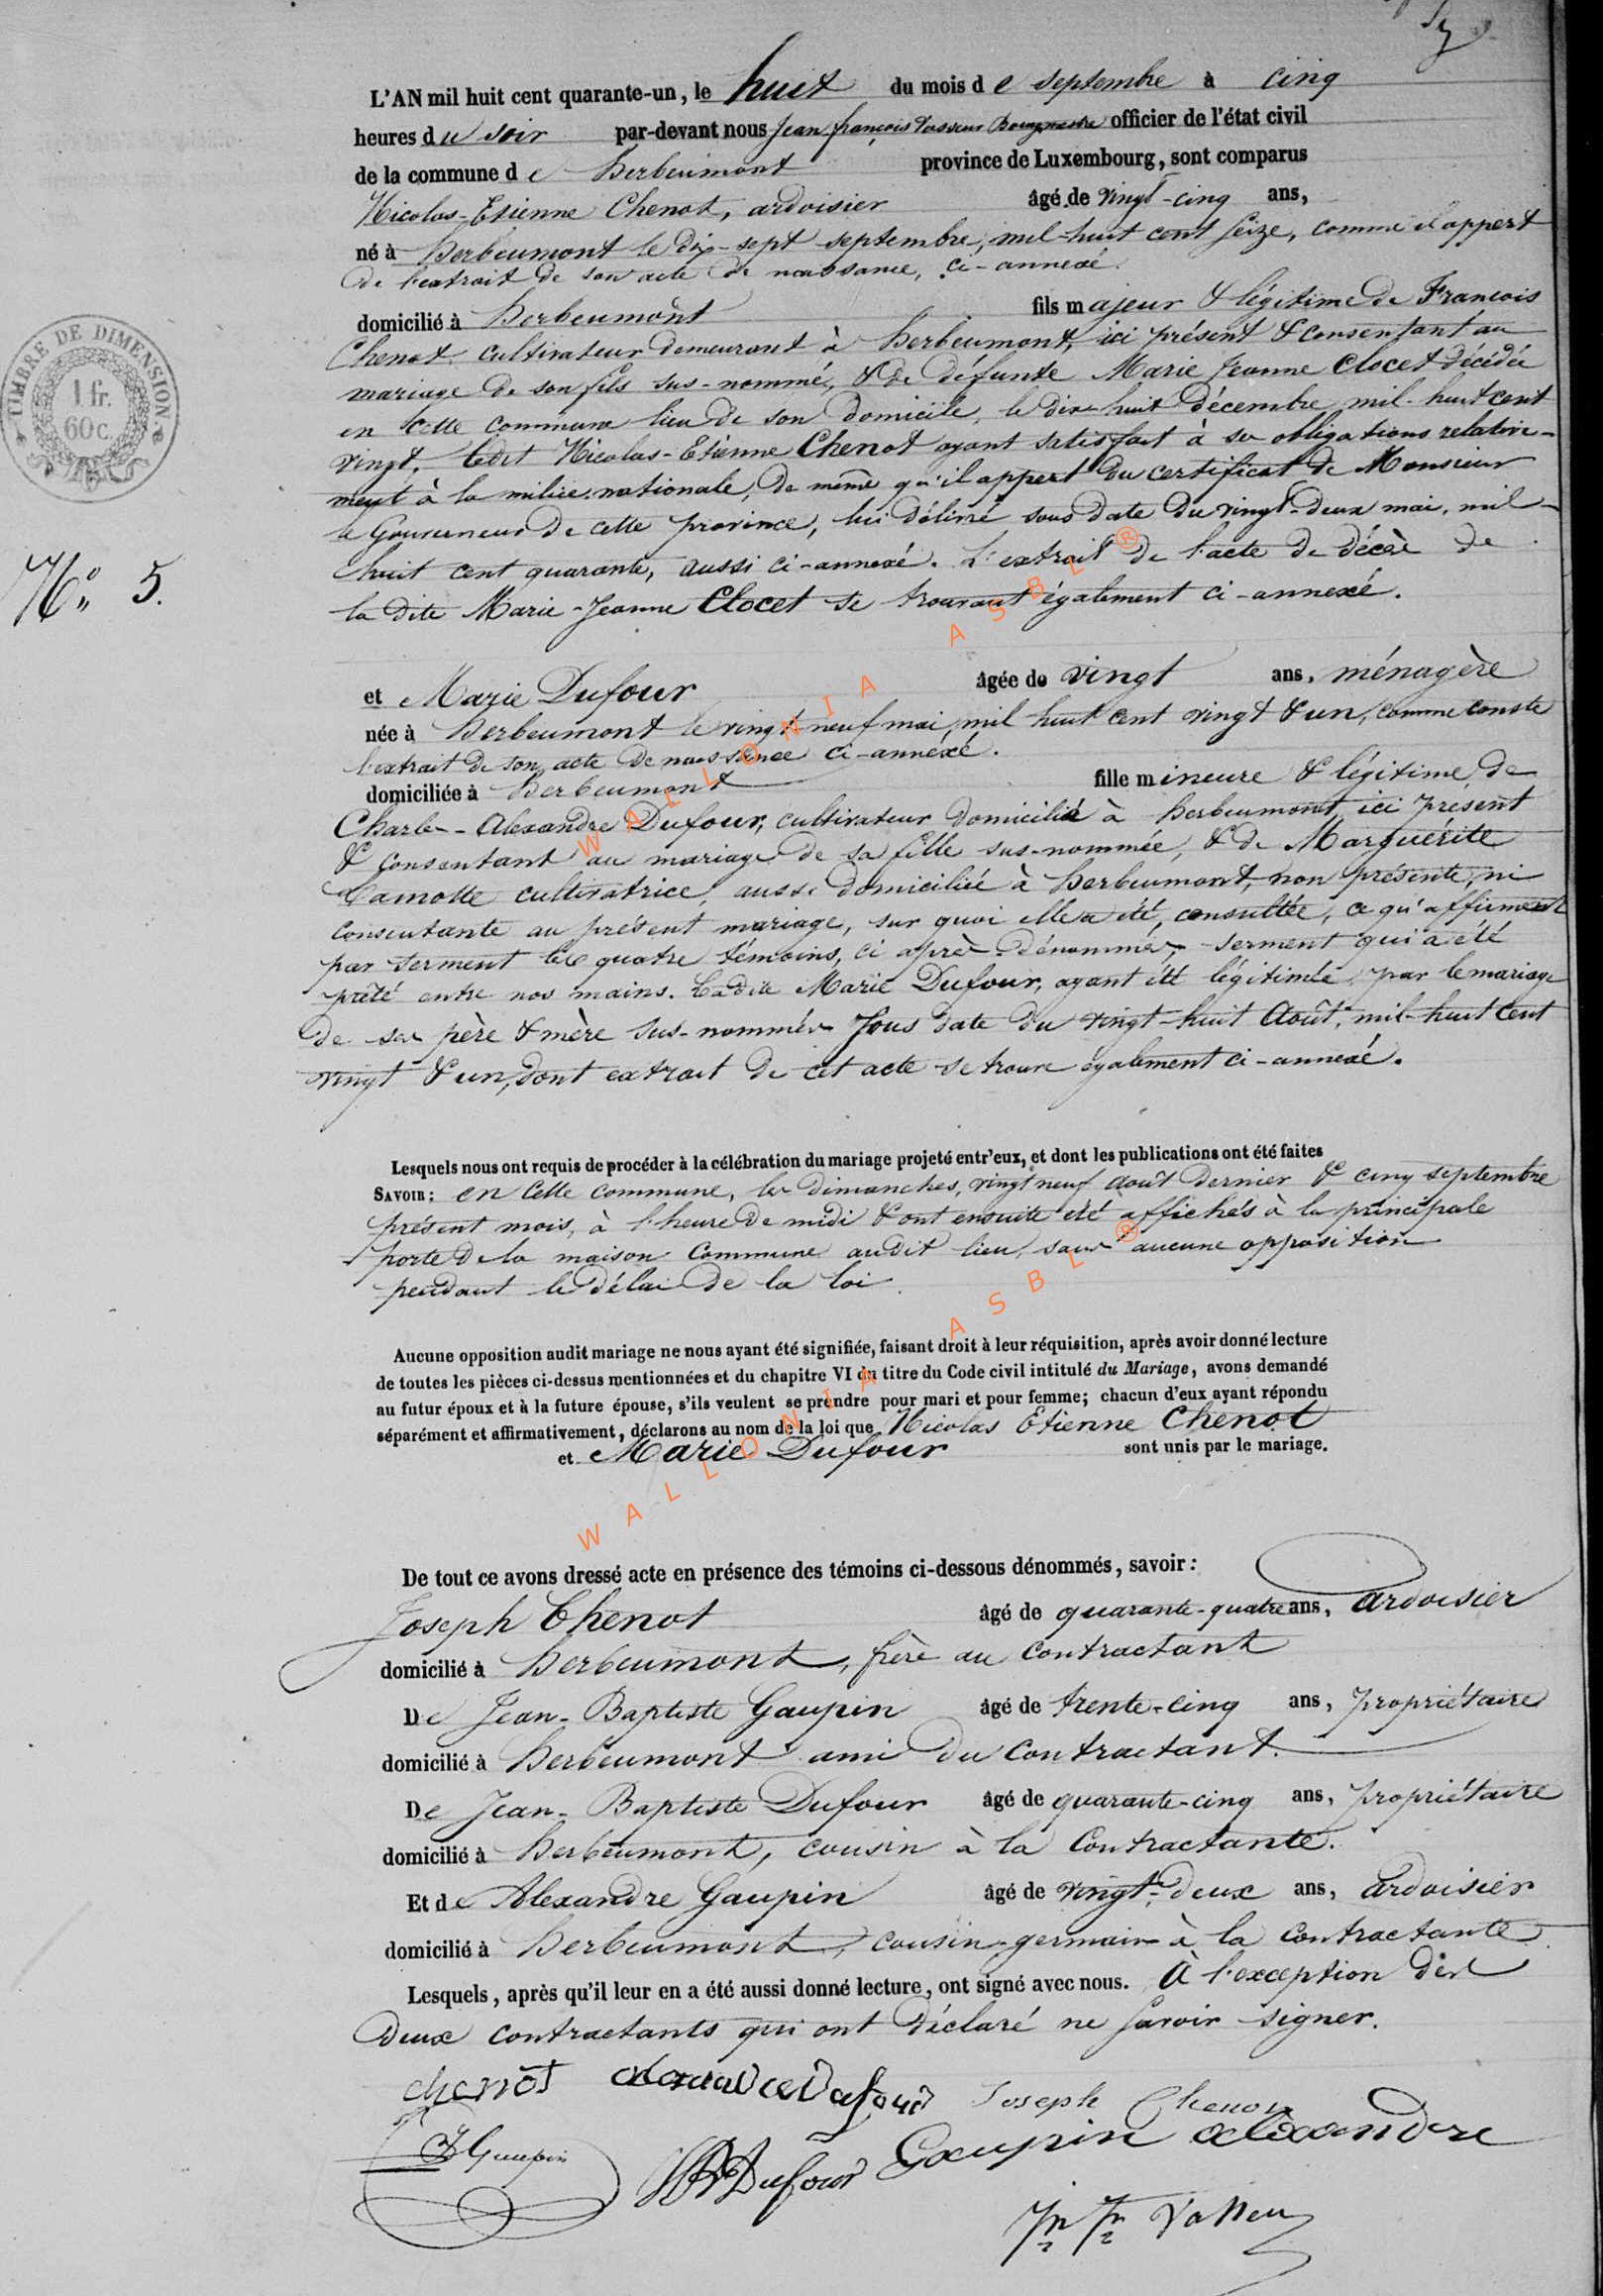 L'AN mil huit cent quarante-un, le huit du mois de septembre à cinq
heures du soir par-devant nous Jean françois Vasseur Bourgmestre officier de l'état civil
de la commune de herbeumont province de Luxembourg, sont comparus
Nicolas-Etienne Chenot, ardoisier âgé de vingt-cinq ans,
né à herbeumont le dix-sept septembre, mil-huit cent seize, comme il appert
de l'extrait de son acte de naissance, ci-annexé.
domicilié à herbeumont fils majeur & légitime de François
Chenot cultivateur demeurant à herbeumont, ici présent & consentant au
mariage de son fils sus-nommé, & de défunte Marie Jeanne Clocet décédée
en cette commune lieu de son domicile, le dix-huit décembre mil-huit cent
vingt. Ledit Nicolas-Etienne Chenot ayant satisfait à ses obligations relative-
ment à la milice nationale, de même qu'il appert du certificat de Monsieur
le Gouverneur de cette province, lui délivré sous date du vingt-deux mai, mil-
huit cent quarante, aussi ci-annexé. L'extrait de l'acte de décès de
la dite Marie-Jeanne Clocet se trouvant également ci-annexé.
TIMBRE DE DIMENSION.
1 fr.
60 c.
N° 5.
et Marie Dufour âgée de vingt ans, ménagère
née à herbeumont le vingt neuf mai, mil huit cent vingt & un, comme conste
l'extrait de son acte de naissance ci-annexé.
domiciliée à herbeumont fille mineure & légitime de
Charles-Alexandre Dufour, cultivateur domicilié à herbeumont, ici présent
& consentant au mariage de sa fille sus-nommée, & de Marguérite
Lamotte cultivatrice, aussi domiciliée à herbeumont, non présente, ni
consentante au présent mariage, sur quoi elle a été consultée, ce qu'affirment
par serment les quatre témoins, ci après dénommés, serment qui a été
prêté entre nos mains. Ladite Marie Dufour, ayant été légitimée par le mariage
de ses père & mère sus-nommés sous date du vingt-huit Août, mil-huit cent
vingt & un, dont extrait de cet acte se trouve également ci-annexé.
Lesquels nous ont requis de procéder à la célébration du mariage projeté entr'eux, et dont les publications ont été faites
SAVOIR: en cette commune, les dimanches, vingt neuf août dernier & cinq septembre
présent mois, à l'heure de midi & ont ensuite été affichés à la principale
porte de la maison Commune audit lieu, sans aucune opposition
pendant le délai de la loi.
Aucune opposition audit mariage ne nous ayant été signifiée, faisant droit à leur réquisition, après avoir donné lecture
de toutes les pièces ci-dessus mentionnées et du chapitre VI du titre du Code civil intitulé du Mariage, avons demandé
au futur époux et à la future épouse, s'ils veulent se prendre pour mari et pour femme; chacun d'eux ayant répondu
séparément et affirmativement, déclarons au nom de la loi que Nicolas Etienne Chenot
et Marie Dufour sont unis par le mariage.
WALLONIA ASBL ®
WALLONIA ASBL ®
De tout ce avons dressé acte en présence des témoins ci-dessous dénommés, savoir:
Joseph Chenot âgé de quarante-quatre ans, ardoisier
domicilié à herbeumont, frère au contractant
De Jean-Baptiste Gaupin âgé de trente-cinq ans, propriétaire
domicilié à herbeumont ami du contractant.
De Jean-Baptiste Dufour âgé de quarante-cinq ans, propriétaire
domicilié à herbeumont, cousin à la contractante.
Et de Alexandre Gaupin âgé de vingt-deux ans, ardoisier
domicilié à herbeumont, cousin-germain à la contractante
Lesquels, après qu'il leur en a été aussi donné lecture, ont signé avec nous. À l'exception des
deux contractants qui ont déclaré ne savoir signer.
chenot alexandre Dufour Joseph Chenot
JB Gaupin JB Dufour Gaupin alexandre
Jn Fr Vasseur